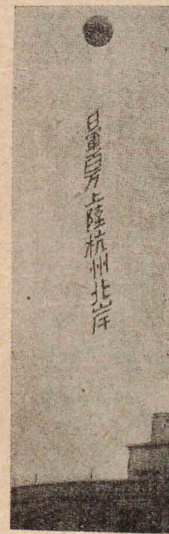 日軍百万上陸杭州北岸